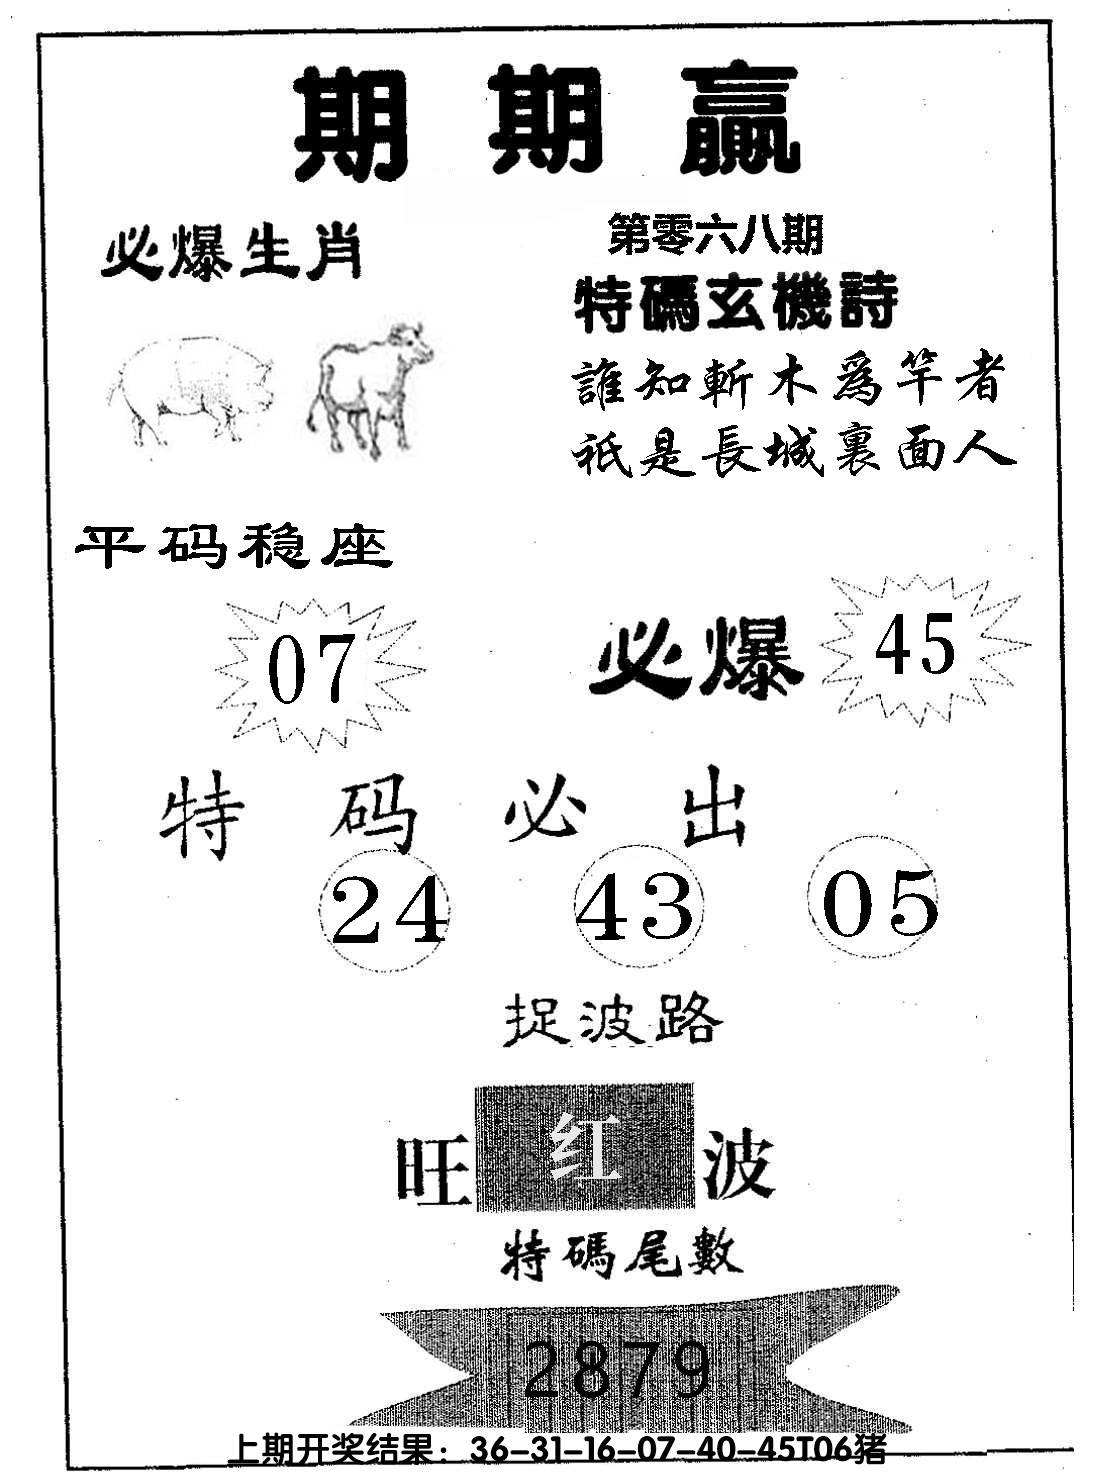 期期赢
必爆生肖
第零六八期
特碼玄機詩
誰知斬木爲竿者
祇是長城裏面人
平码稳座
07
必爆
45
特码必出
24 43 05
捉波路
旺红波
特碼尾數
2879
上期开奖结果：36-31-16-07-40-45T06猪